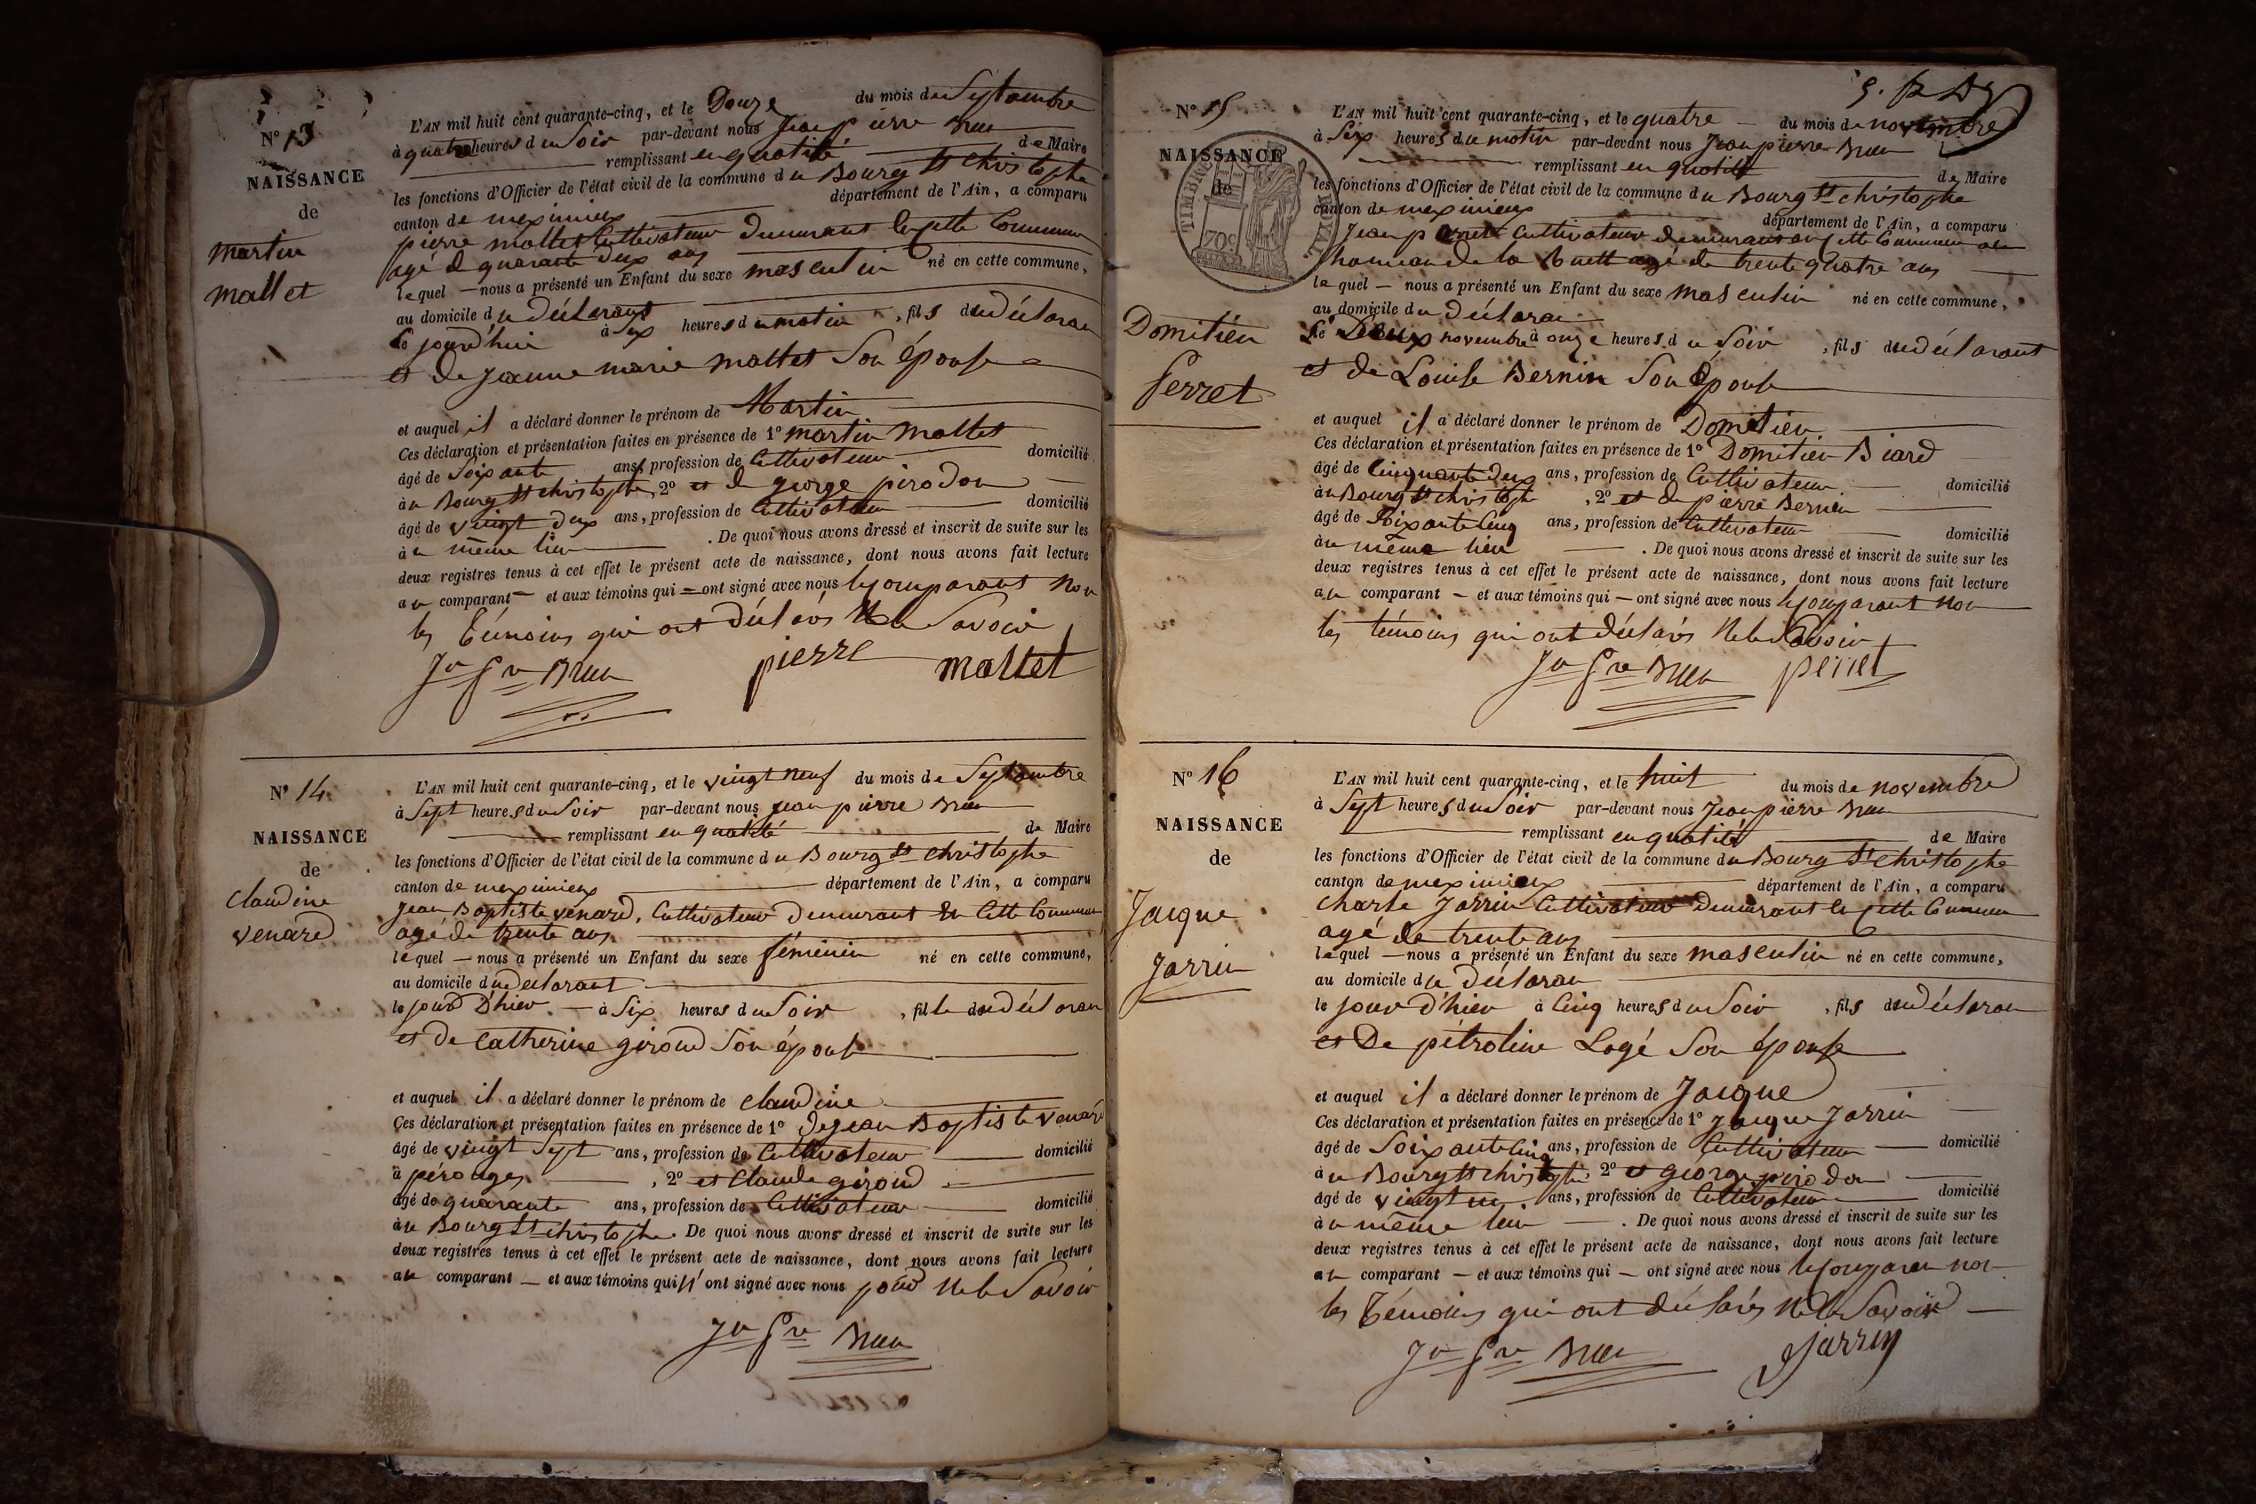 N° 13
NAISSANCE
de
martin
mallet
L'AN mil huit cent quarante-cinq, et le Douze du mois de Septembre
à quatre heures du Soir par-devant nous Jean pierre Brun
remplissant en qualité de Maire
les fonctions d'Officier de l'état civil de la commune du Bourg St christophe
canton de meximieux département de l'Ain, a comparu
pierre mallet Cultivateur Demeurant cette Commune
agé de quarante deux ans
lequel — nous a présenté un Enfant du sexe masculin né en cette commune,
au domicile du déclarant
le jourd'hui à Six heures du matin, fils du déclaran
et de jeanne marie mallet Son épouse
et auquel il a déclaré donner le prénom de Martin
Ces déclaration et présentation faites en présence de 1° martin mallet
âgé de Soixante ans, profession de Cultivateur domicilié
à u Bourg St christophe, 2° et de george pirodon
âgé de vingt deux ans, profession de Cultivateur domicilié
à u même lieu . De quoi nous avons dressé et inscrit de suite sur les
deux registres tenus à cet effet le présent acte de naissance, dont nous avons fait lecture
au comparant — et aux témoins qui — ont signé avec nous le Comparant Non
les Témoins qui ont déclarés Ne le Savoir
Jn Pre Brun pierre mallet
N° 14
NAISSANCE
de
claudine
venard
L'AN mil huit cent quarante-cinq, et le vingt neuf du mois de Septembre
à Sept heures du Soir par-devant nous jean pierre Brun
remplissant en qualité de Maire
les fonctions d'Officier de l'état civil de la commune du Bourg St christophe
canton de meximieux département de l'Ain, a comparu
jean Baptiste venard, Cultivateur Demeurant En Cette Commune
agé de trente ans
lequel — nous a présenté un Enfant du sexe féminin né en cette commune,
au domicile du déclarant
le jour D'hier — à Six heures du Soir, fille du déclaran
et de catherine giroud Son épouse
et auquel il a déclaré donner le prénom de claudine
Ces déclaration et présentation faites en présence de 1° de jean Baptiste venard
âgé de vingt Sept ans, profession de Cultivateur domicilié
à pérouges, 2° et Claude giroud
âgé de quarante ans, profession de Cultivateur domicilié
à u Bourg St christophe. De quoi nous avons dressé et inscrit de suite sur les
deux registres tenus à cet effet le présent acte de naissance, dont nous avons fait lecture
au comparant — et aux témoins qui n' ont signé avec nous pour Ne le Savoir
Jn Pre Brun
N° 15
NAISSANCE
de
TIMBRE ROYAL
70c
Domitien
Perret
L'AN mil huit cent quarante-cinq, et le quatre — du mois de novembre
à Six heures du matin par-devant nous Jean pierre Brun
remplissant en qualité de Maire
les fonctions d'Officier de l'état civil de la commune du Bourg St christophe
canton de meximieux département de l'Ain, a comparu
Jean Perret Cultivateur demeurant en Cette Commune au
hameau de la agé de trente quatre ans
lequel — nous a présenté un Enfant du sexe masculin né en cette commune,
au domicile du déclaran
le Deux novembre à onze heures du Soir, fils du déclarant
et de Louise Bernin Son épouse
et auquel il a déclaré donner le prénom de Domitien
Ces déclaration et présentation faites en présence de 1° Domitien Biard
âgé de Cinquante deux ans, profession de Cultivateur domicilié
à u Bourg St christophe, 2° et de pierre Bernin
âgé de Soixante Cinq ans, profession de Cultivateur domicilié
à u même lieu . De quoi nous avons dressé et inscrit de suite sur les
deux registres tenus à cet effet le présent acte de naissance, dont nous avons fait lecture
au comparant — et aux témoins qui — ont signé avec nous le Comparant Non
les témoins qui ont déclarés Ne le Savoir
Jn Pre Brun perret
N° 16
NAISSANCE
de
Jacque
Jarrin
L'AN mil huit cent quarante-cinq, et le huit du mois de novembre
à Sept heures du Soir par-devant nous Jean pierre Brun
remplissant en qualité de Maire
les fonctions d'Officier de l'état civil de la commune du Bourg St christophe
canton de meximieux département de l'Ain, a comparu
charle Jarrin Cultivateur Demeurant cette Commune
agé de trente ans
lequel — nous a présenté un Enfant du sexe masculin né en cette commune,
au domicile du déclaran
le jour d'hier à Cinq heures du Soir, fils du déclaran
et De pétroline Logé Son épouse
et auquel il a déclaré donner le prénom de Jacque
Ces déclaration et présentation faites en présence de 1° Jacque Jarrin
âgé de Soixante Cinq ans, profession de Cultivateur — domicilié
à u Bourg St christophe 2° et george pirodon
âgé de vingt ans, profession de Cultivateur domicilié
à u même lieu — . De quoi nous avons dressé et inscrit de suite sur les
deux registres tenus à cet effet le présent acte de naissance, dont nous avons fait lecture
au comparant — et aux témoins qui — ont signé avec nous le Comparan non
les Témoins qui ont déclarés Ne le Savoir
Jn Pre Brun Jarrin